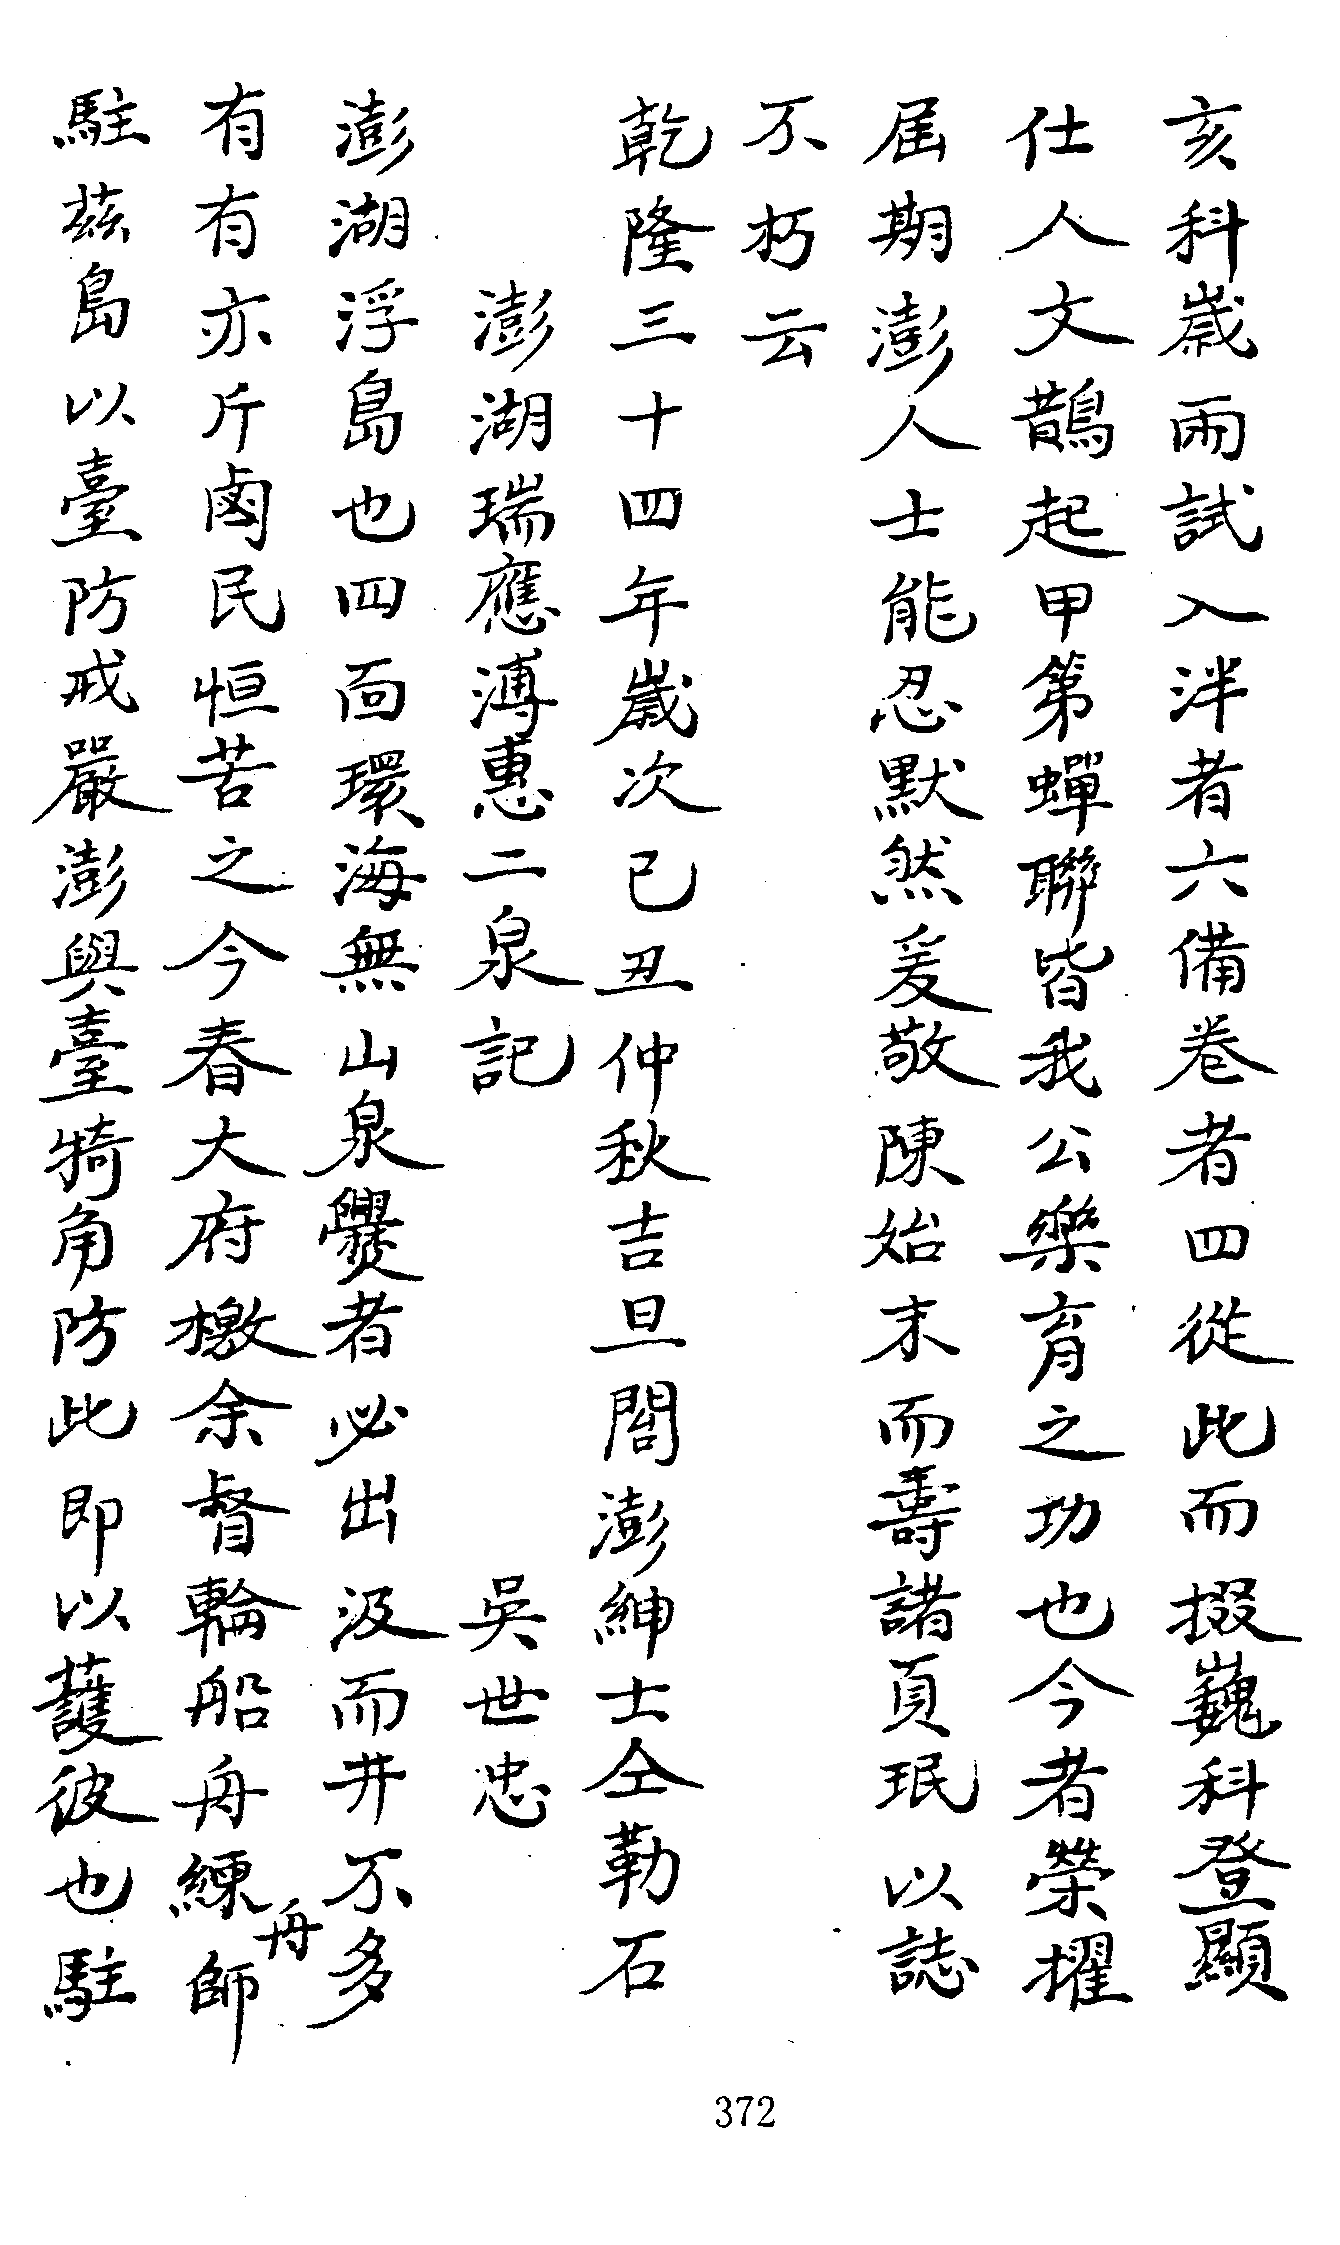 亥科歲兩試入泮者六備卷者四從此而掇巍科登顯
仕人文鵲起甲第蟬聯皆我公樂育之功也今者榮擢
屆期澎人士能忍默然爰敬陳始末而壽諸貞珉以誌
不朽云
乾隆三十四年歲次己丑仲秋吉旦閤澎紳士仝勒石
澎湖瑞應溥惠二泉記 吳世忠
澎湖浮島也四面環海無山泉爨者必出汲而井不多
有有亦斥鹵民恒苦之今春大府檄余督輪船舟練師
舟
駐茲島以臺防戒嚴澎與臺犄角防此即以護彼也駐
372